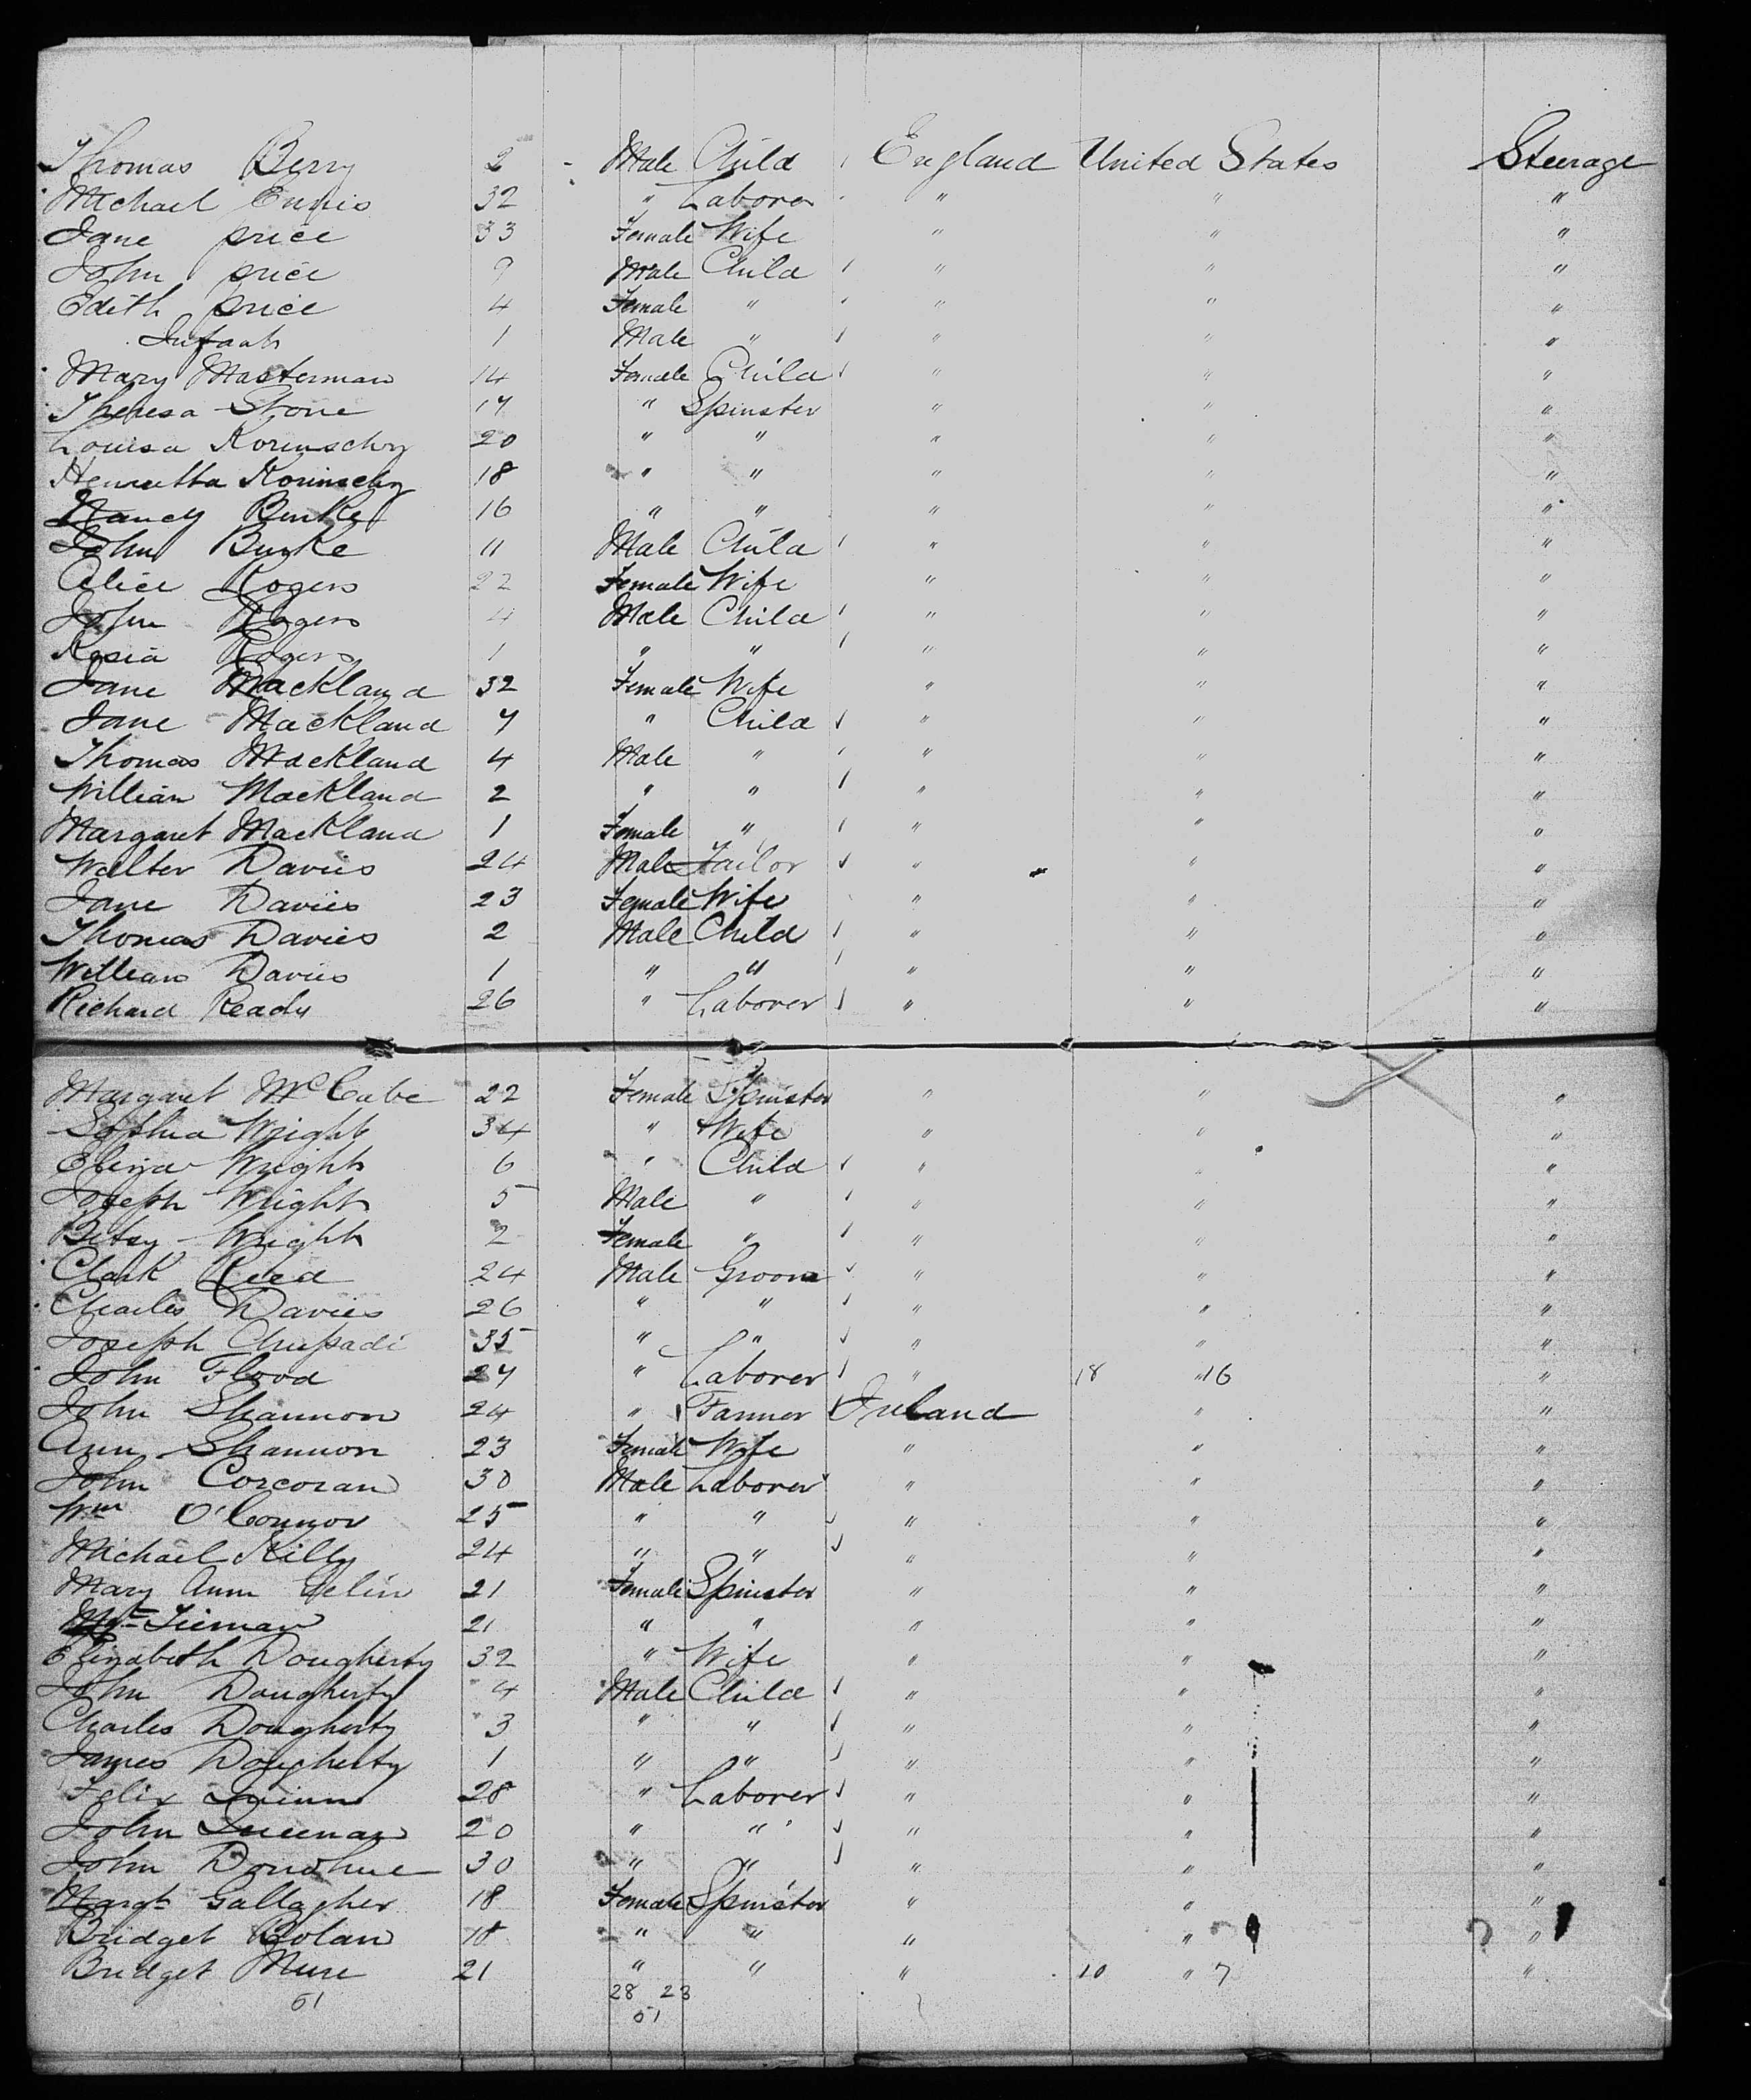 Thomas Berry 2 - Male Child England United States Steerage
Michael Ennis 32 " Laborer " " "
Jane price 33 Female Wife " " "
John price 9 Male Child " " "
Edith price 4 Female " " " "
Infant 1 Male " " " "
Mary Masterman 14 Female Child " " "
Theresa Stone 17 " Spinster " " "
Louisa 20 " " " " "
Henrietta 18 " " " " "
Nancy Burke 16 " " " " "
John Burke 11 Male Child " " "
Alice Rogers 22 Female Wife " " "
John Rogers 4 Male Child " " "
Rogers 1 " " " " "
Jane Mackland 32 Female Wife " " "
Jane Mackland 7 " Child " " "
Thomas Mackland 4 Male " " " "
William Mackland 2 " " " " "
Margaret Mackland 1 Female " " " "
Walter Davies 24 Male Tailor " " "
Jane Davies 23 Female Wife " " "
Thomas Davies 2 Male Child " " "
William Davies 1 " " " " "
Richard Ready 26 " Laborer " " "
Margaret McCabe 22 Female Spinster " " "
Sophia Wright 34 " Wife " " "
Eliza Wright 6 " Child " " "
Joseph Wright 5 Male " " " "
Betsy Wright 2 Female " " " "
Clark Reed 24 Male Groom " " "
Charles Davies 26 " " " " "
Joseph 35 " " " " "
John Flood 27 " Laborer " 18 " 16 "
John Shannon 24 " Farmer Ireland " "
Ann Shannon 23 Female Wife " " "
John Corcoran 30 Male Laborer " " "
Wm O'Connor 25 " " " " "
Michael Killy 24 " " " " "
Mary Ann 21 Female Spinster " " "
Tiernan 21 " " " " "
Elizabeth Dougherty 32 " Wife " " "
John Dougherty 4 Male Child " " "
Charles Dougherty 3 " " " " "
James Dougherty 1 " " " " "
Felix Quinn 28 " Laborer " " "
John 20 " " " " "
John Donohue 30 " " " " "
Margt Gallagher 18 Female Spinster " " "
Bridget Bolan 18 " " " " "
Bridget Mure 21 " " " 10 " 7 "
51 28 23
51